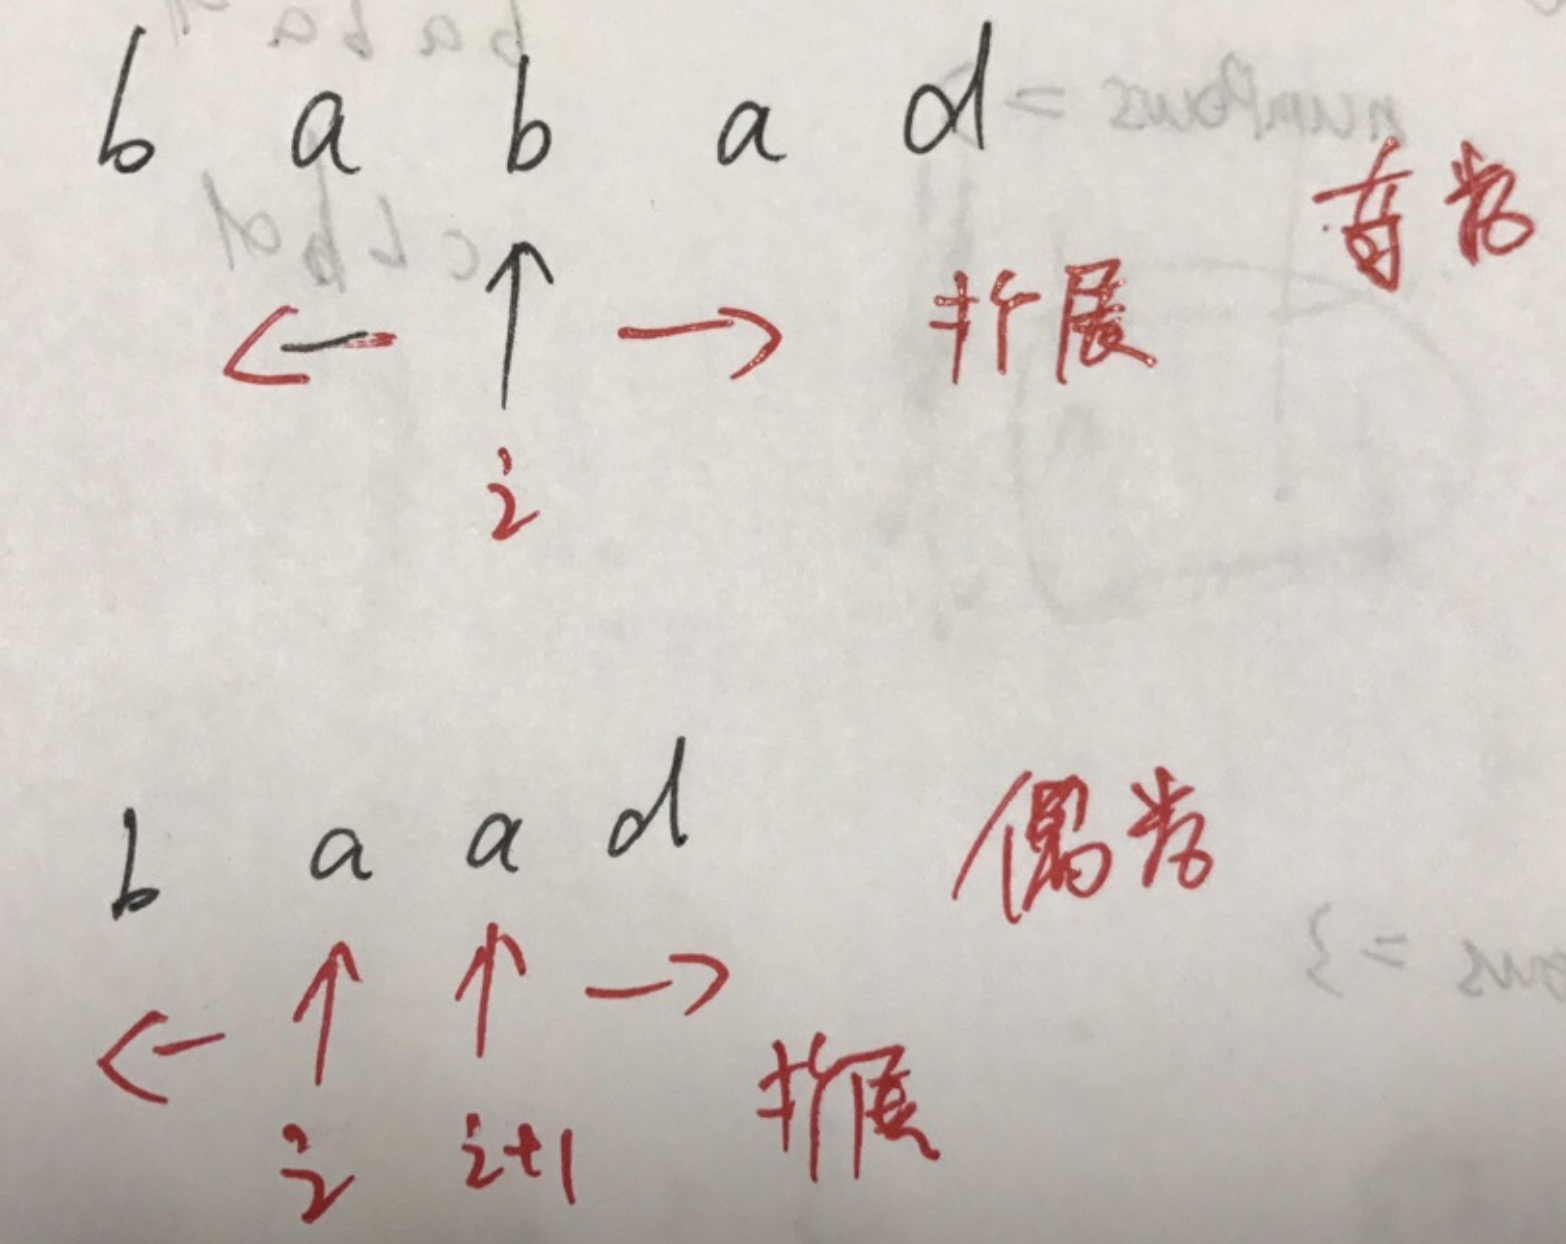 b a b a d
奇数
扩展
i
b a a d
偶数
扩展
i i+1